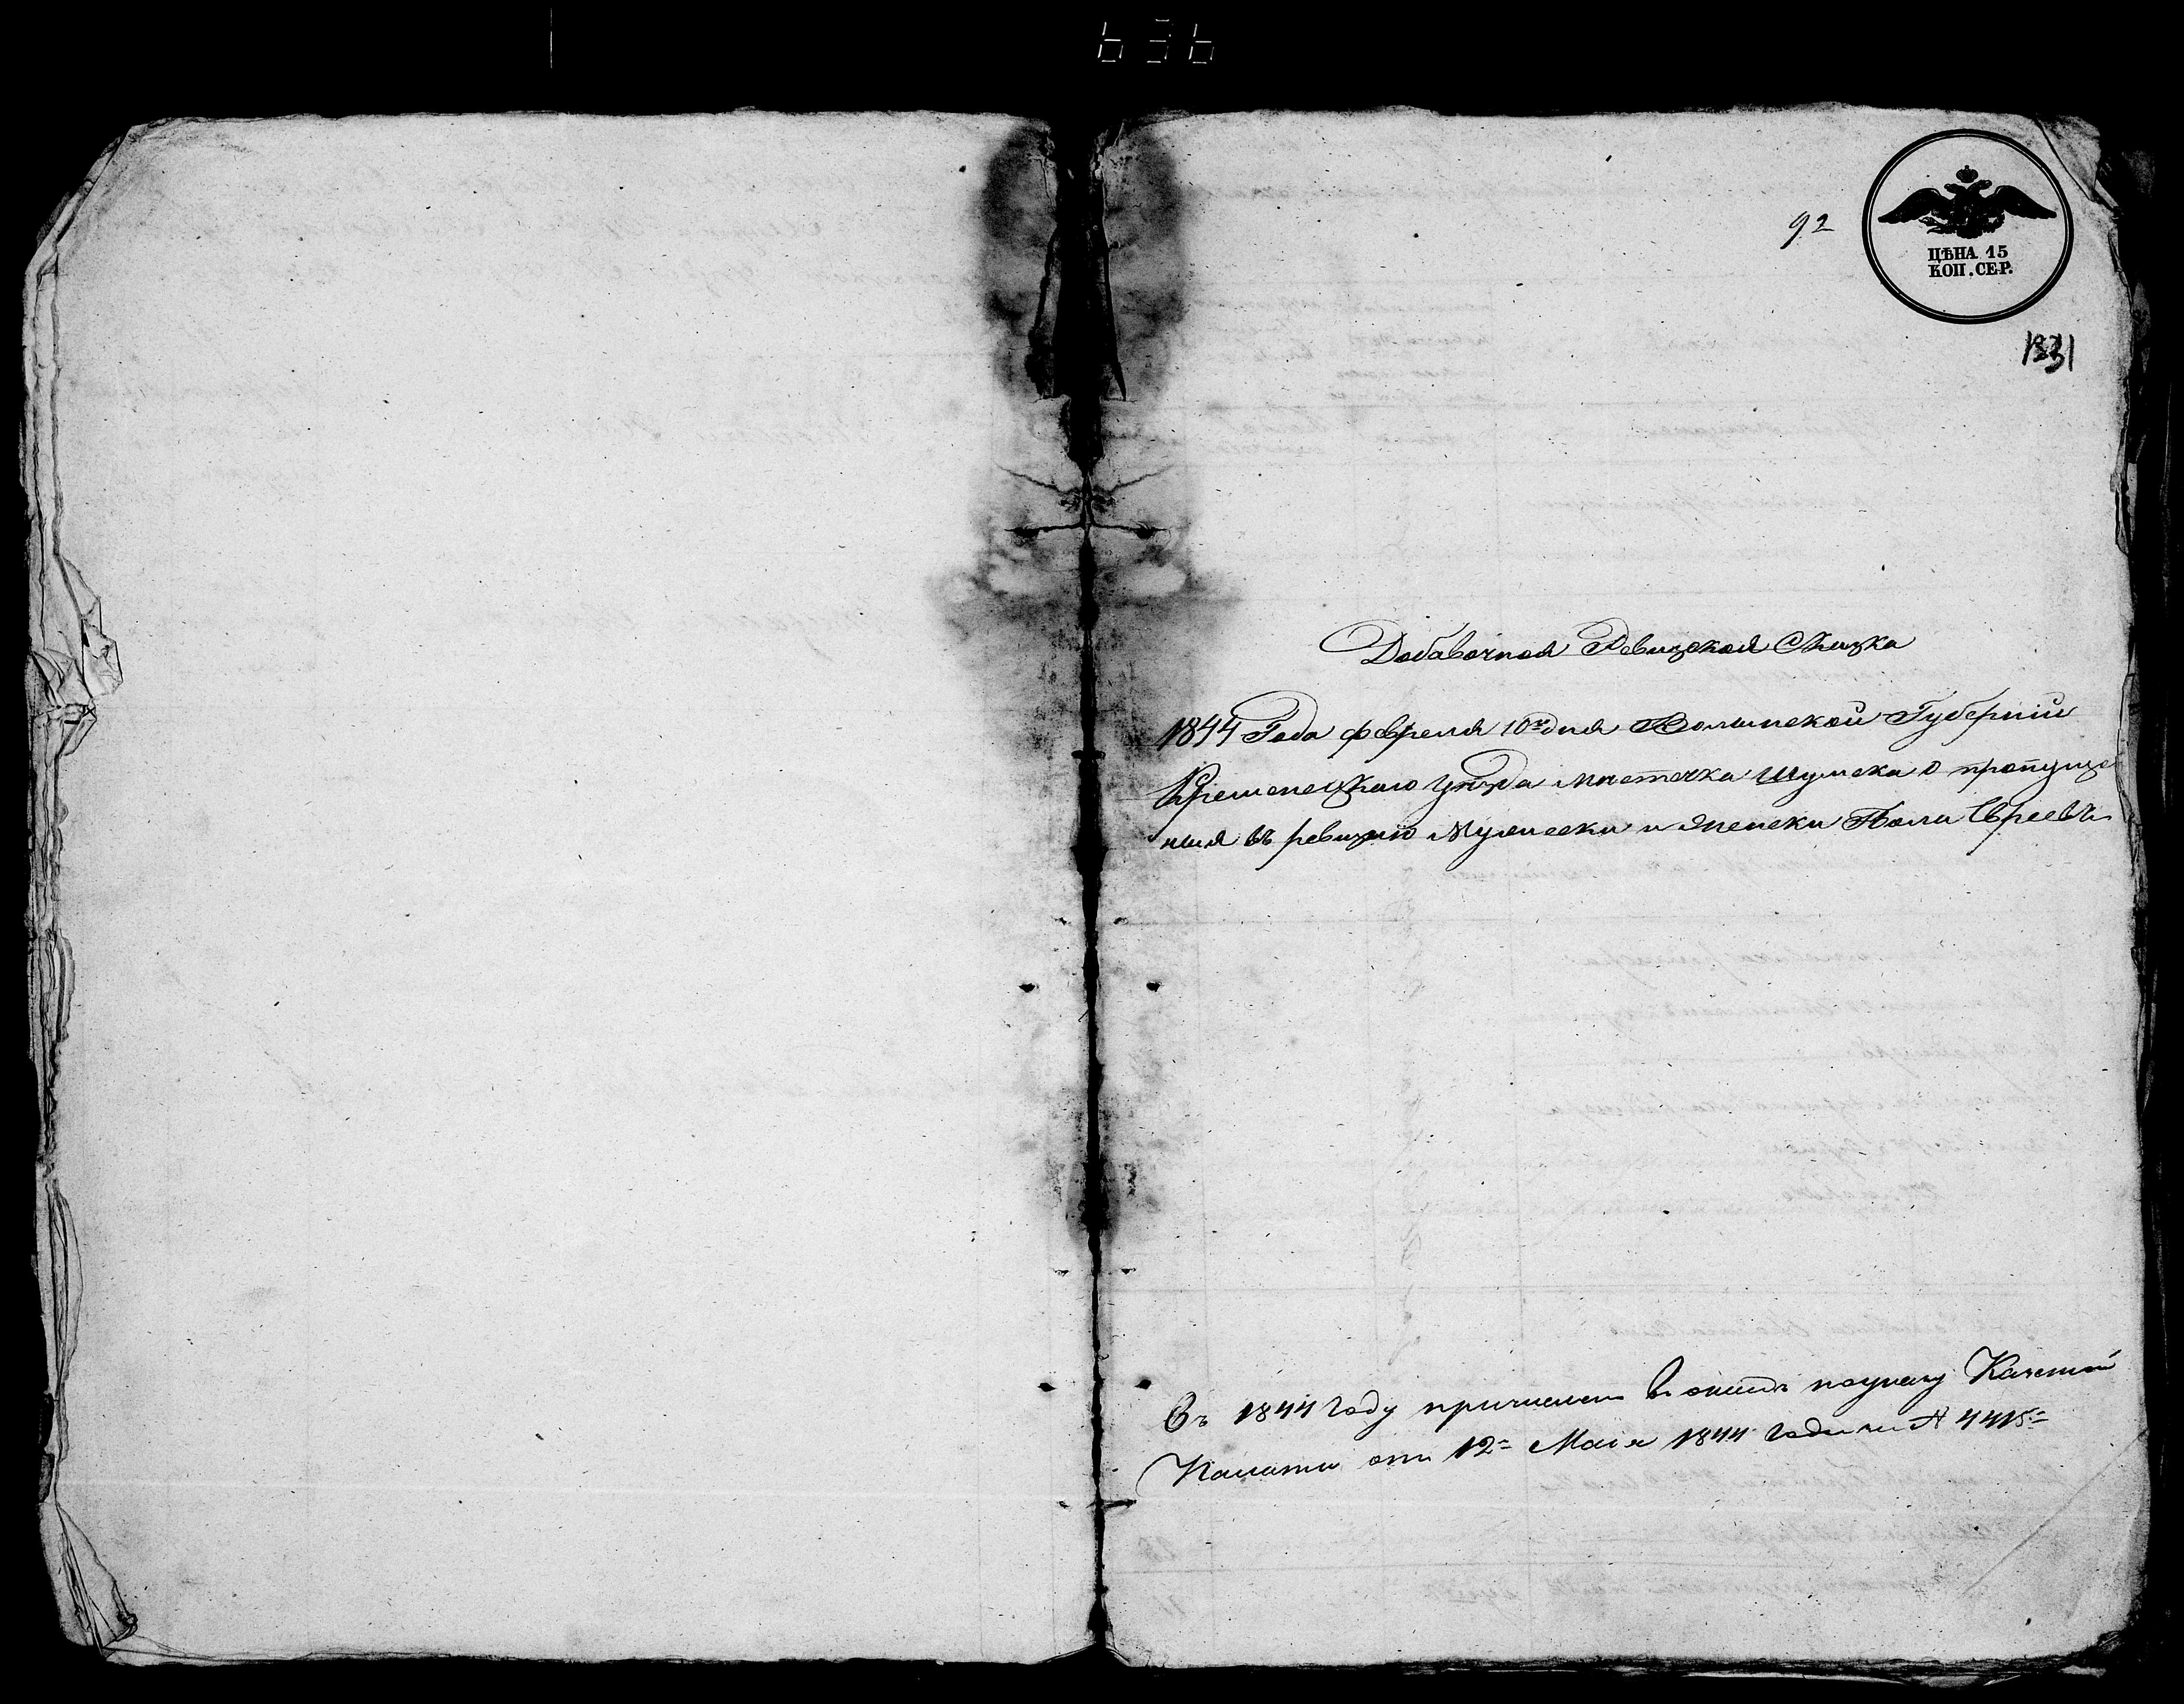 636
92
ЦѢНА 15
КОП. СЕР.
1331
Добавочная Ревизская Сказка
1844 Года февреля 10го дня Волынской Губернии
Кременецкаго Уѣзда мѣстечка Шумска о пропуще
ныя въ ревизию Мужеска и женска Пола Евреевъ
Въ 1844 Году причислен в окладъ по указу Казенной
Палаты от 12 Маія 1844 Года за № 4415